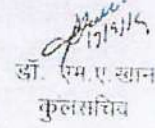 17/9/15
डॉ. एम.ए. खान
कुलसचिव